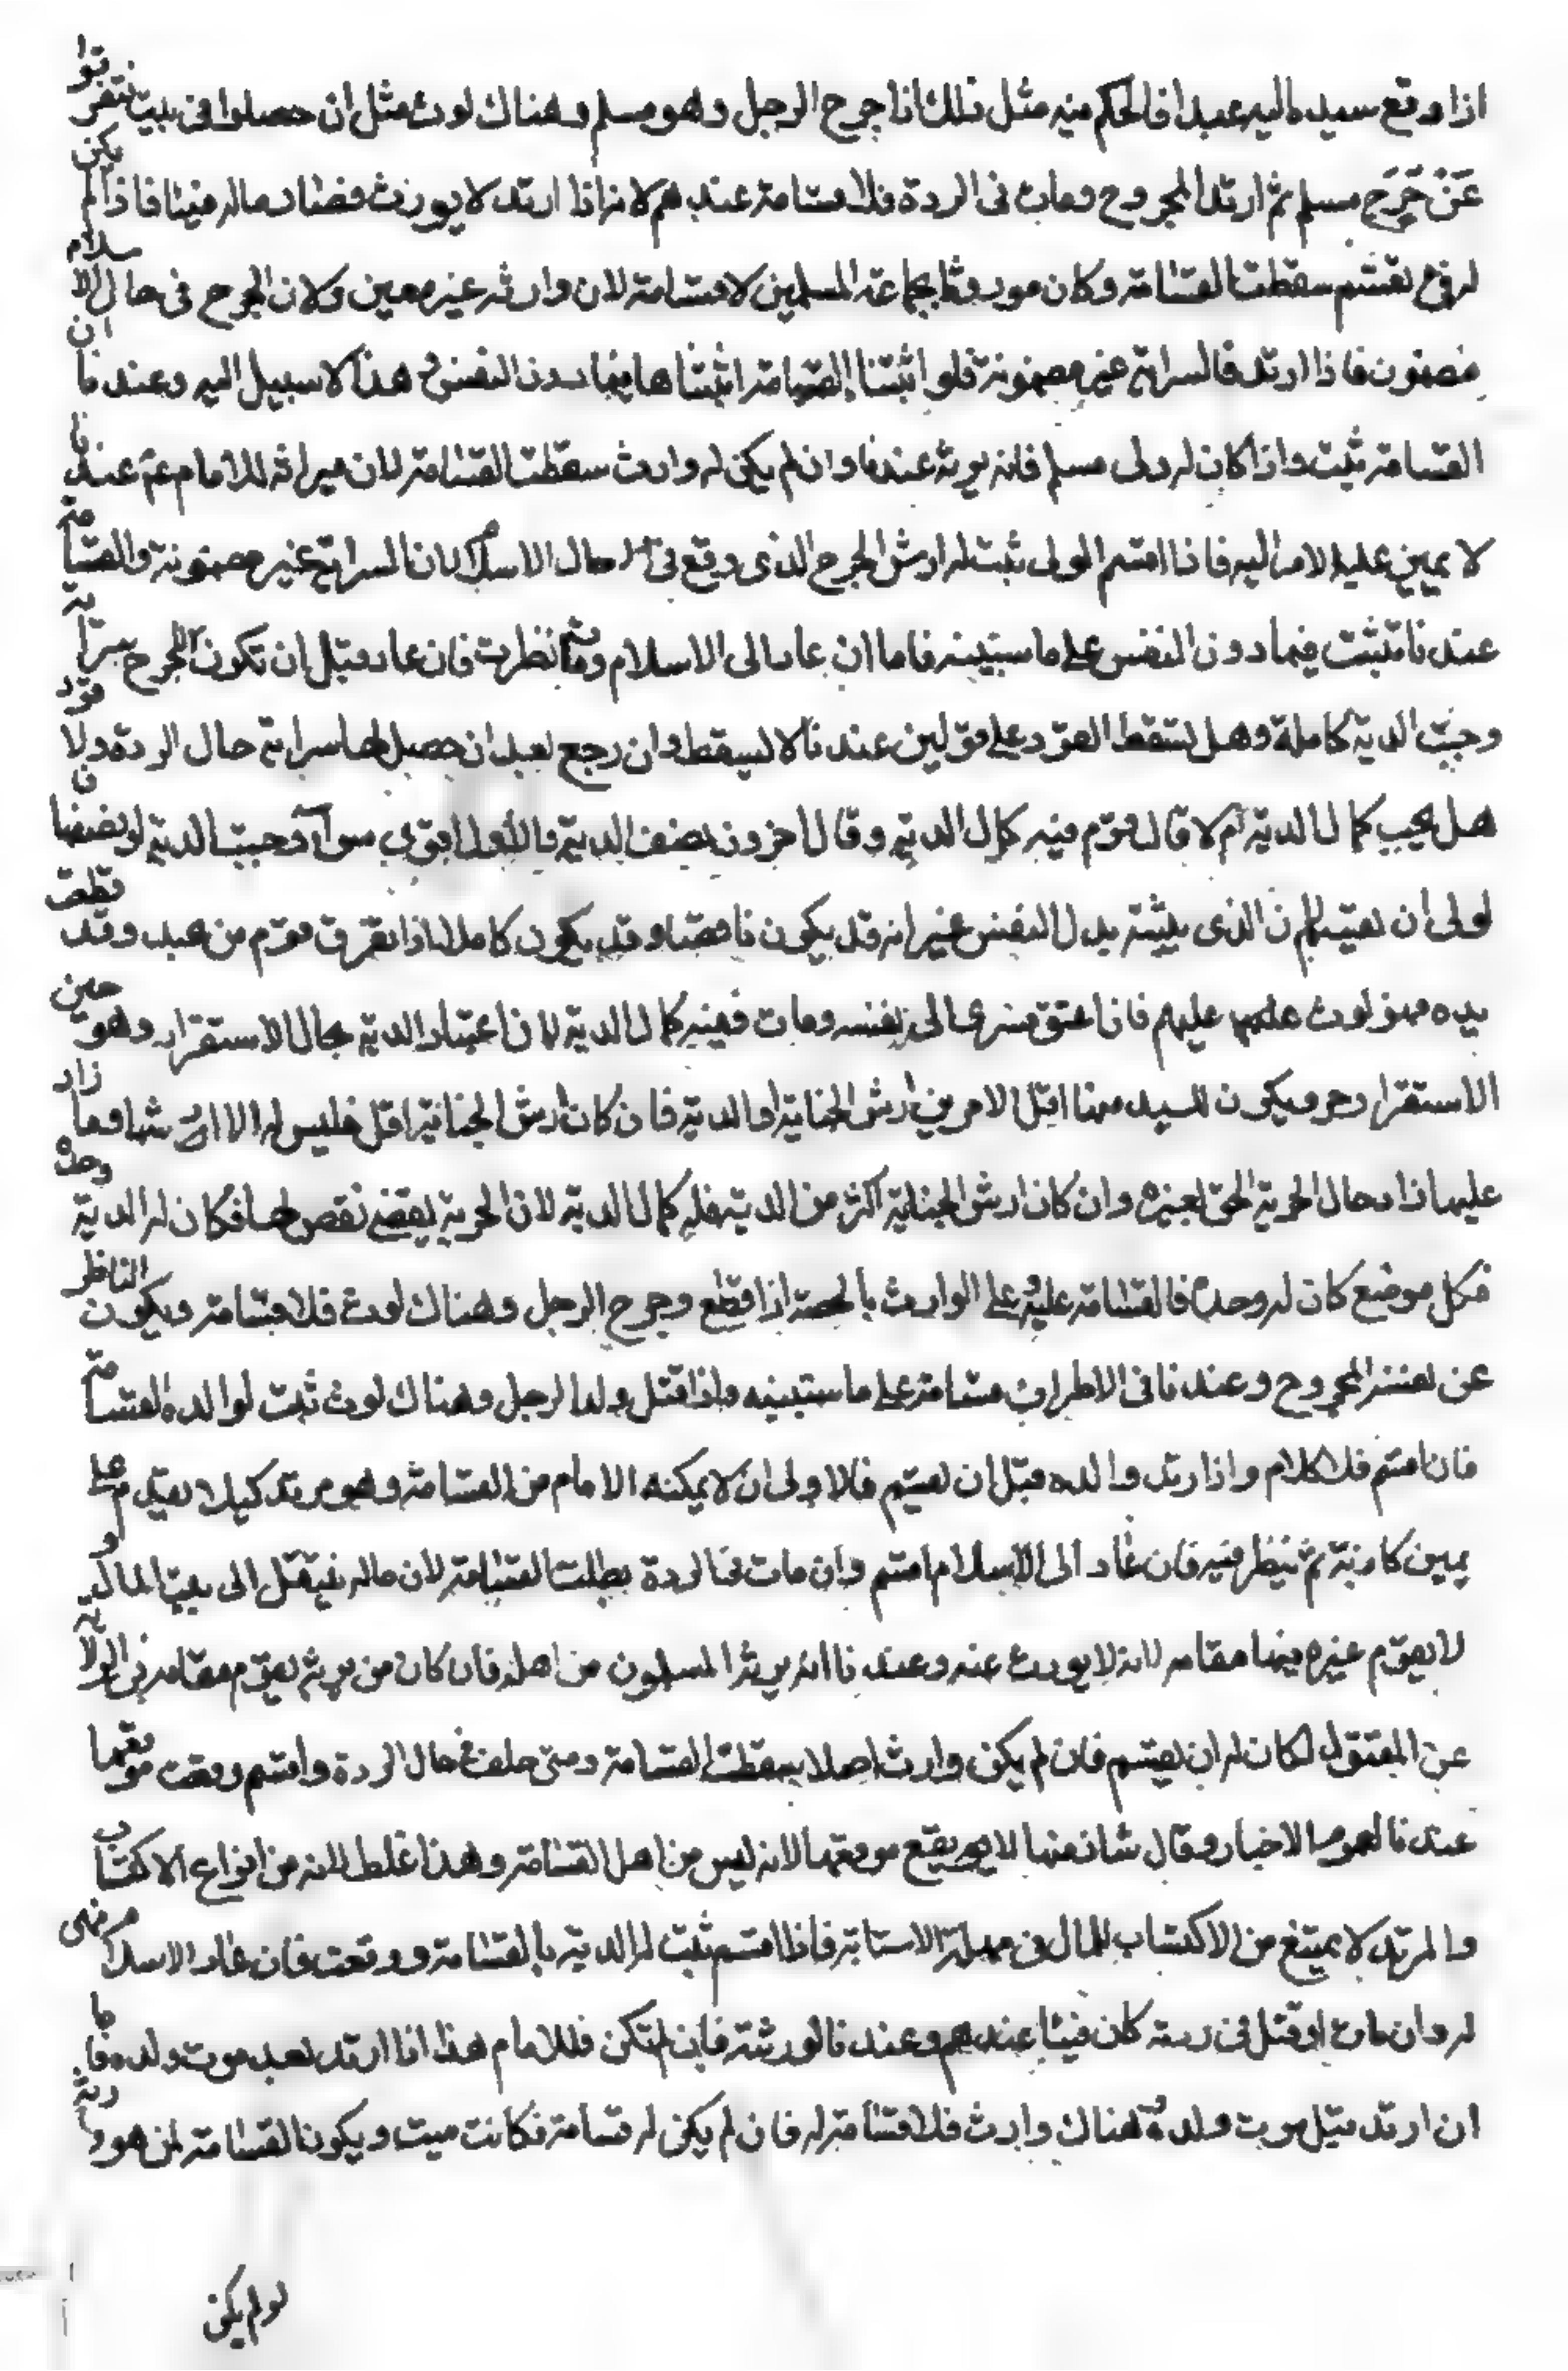 اذا دفع سيده اليه عبدا فالحكم فيه مثل ذلك اذا جرح الرجل وهو مسلم وهناك لوث مثل ان حصلوا فى بيت فتفرقوا
عَنْ جَرحِ مسلم ثم ارتد المجروح ومات فى الردة فلا قسامة عندهم لانه اذا ارتد لا يورث فصار ماله فيئا فاذا لم يكن
له من يقسم سقطت القسامة وكان موروثا لجماعة المسلمين لا قسامة لان وارثه غير معين ولان الجرح فى حال الاسلام
مضمون فاذا ارتد فالسراية غير مضمونة فلو اثبتنا القسامة اثبتناها فيما دون النفس وهذا لا سبيل اليه وعندنا ان
القسامة تثبت واذا كان له ولى مسلم فانه يرثه عندنا وان لم يكن له وارث سقطت القسامة لان ميراثه للامام عم عندنا
لا يمين عليه الامر اليه فاذا اقسم الولى ثبت له ارش الجرح الذى وقع فى حال الاسلام لان السراية غير مضمونة والقسامة
عندنا تثبت فيما دون النفس على ما سنبينه فاما ان عاد الى الاسلام ومات نظرت فان عاد قبل ان تكون للجرح سراية
وجبت الدية كاملة وهل يسقط القود على قولين عندنا لا يسقط وان رجع بعد ان حصل لها سراية حال الردة ولا قود
هل يجب كمال الدية ام لا قال قوم فيه كمال الدية وقال اخرون نصف الدية والاول اقوى سوآء وجبت الدية او نصفها فا
لولى ان يقسم لان الذى يثبته بدل النفس غير انه قد يكون ناقصا وقد يكون كاملا اذا تفرق قوم من عبد وقد قطعت
يده فهو لوث عليهم فاذا اعتق فسرى الى نفسه ومات ففيه كمال الدية لان اعتبار الدية بحال الاستقرار وهو حين
الاستقرار حر ويكون للسيد منها اقل الامرين ارش الجناية او الدية فان كان ارش الجناية اقل فليس له الا ارشها وما زاد
عليها زاد حال الحرية الحق لغيره وان كان ارش الجناية اكثر من الدية فله كمال الدية لان الحرية يقتضى نقص لها فكان له الدية وحده
فكل موضع كان له وحده فالقسامة عليه وعلى الوارث بالحصة اذا قطع وجرح الرجل وهناك لوث فلا قسامة ويكون الناظر
عن نفسه المجروح وعندنا فى الاطراف قسامة على ما سنبينه واذا قتل ولد الرجل وهناك لوث ثبت لوالده القسامة
فان اقسم فلا كلام واذا ارتد والده قبل ان يقسم فالاولى ان لا يمكنه الامام من القسامة وهو مرتد كيلا يقدم على
يمين كاذبة ثم ينظر فيه فان عاد الى الاسلام اقسم وان مات فى الردة بطلت القسامة لان ماله ينتقل الى بيت المال و
لا يقوم غيره فيها مقامه لانه لا يورث عنه وعندنا انه يرثه المسلمون من اهله فان كان من يرثه يقوم مقامه فى الولاية
عن المقتول لكان له ان يقسم فان لم يكن وارث اصلا سقطت القسامة ومتى حلف فى حال الردة واقسم وقعت موقعها
عندنا لعموم الاخبار وقال شاذ منها لا يقع موقعها لانه ليس من اهل القسامة وهذا غلط لانه من انواع الاكتساب
والمرتد لا يمتنع من الاكتساب للمال فى مهلة الاستتابة فاذا اقسم ثبت له الدية بالقسامة ووقعت فان عاد الاسلام فهى
له وان مات او قتل فى ردته كان فيئا عندهم وعندنا لورثته فان لم تكن فللامام هذا اذا ارتد بعد موت ولده فاما
ان ارتد قبل موت ولده وهناك وارث فلا قسامة له فان لم يكن له قسامة فكانت ميت ويكون القسامة لمن هو وارثه
لو لم يكن